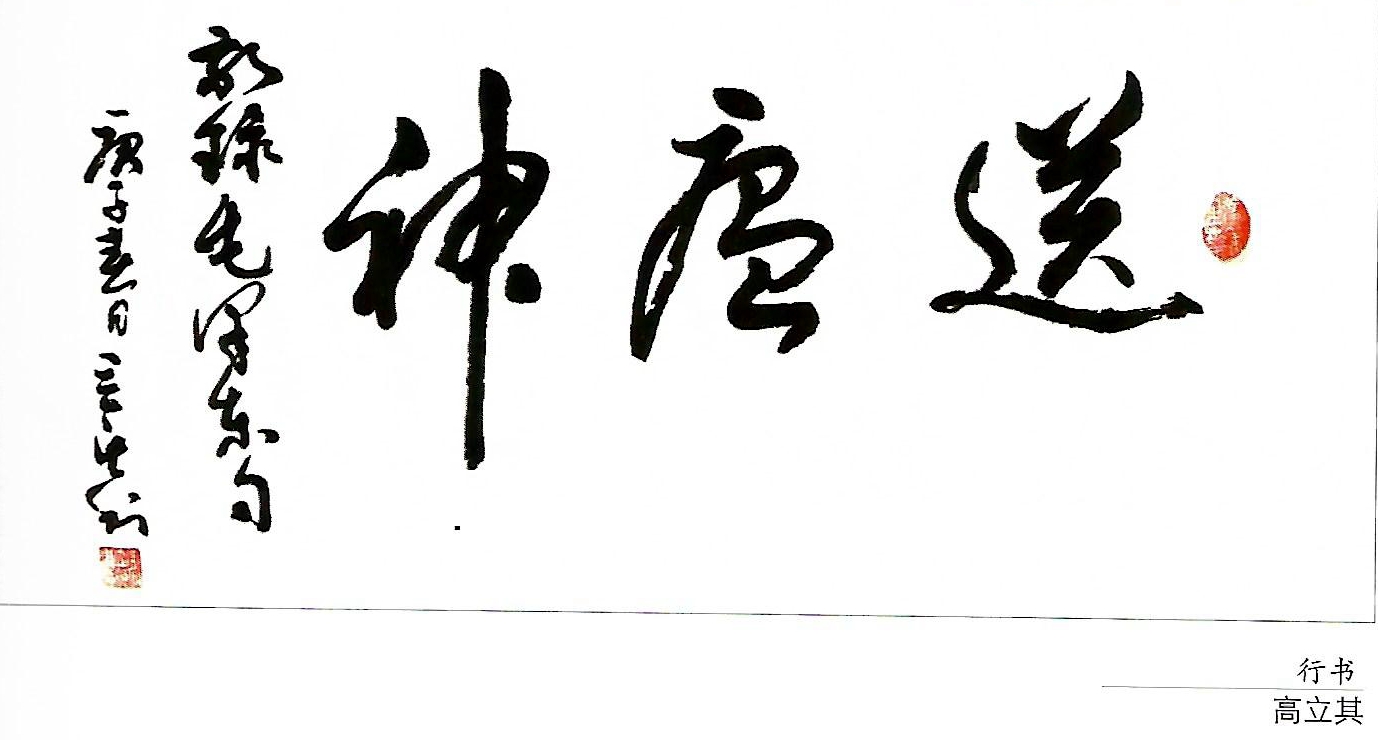 送瘟神
敬录毛泽东句
庚子春日
行书
高立其